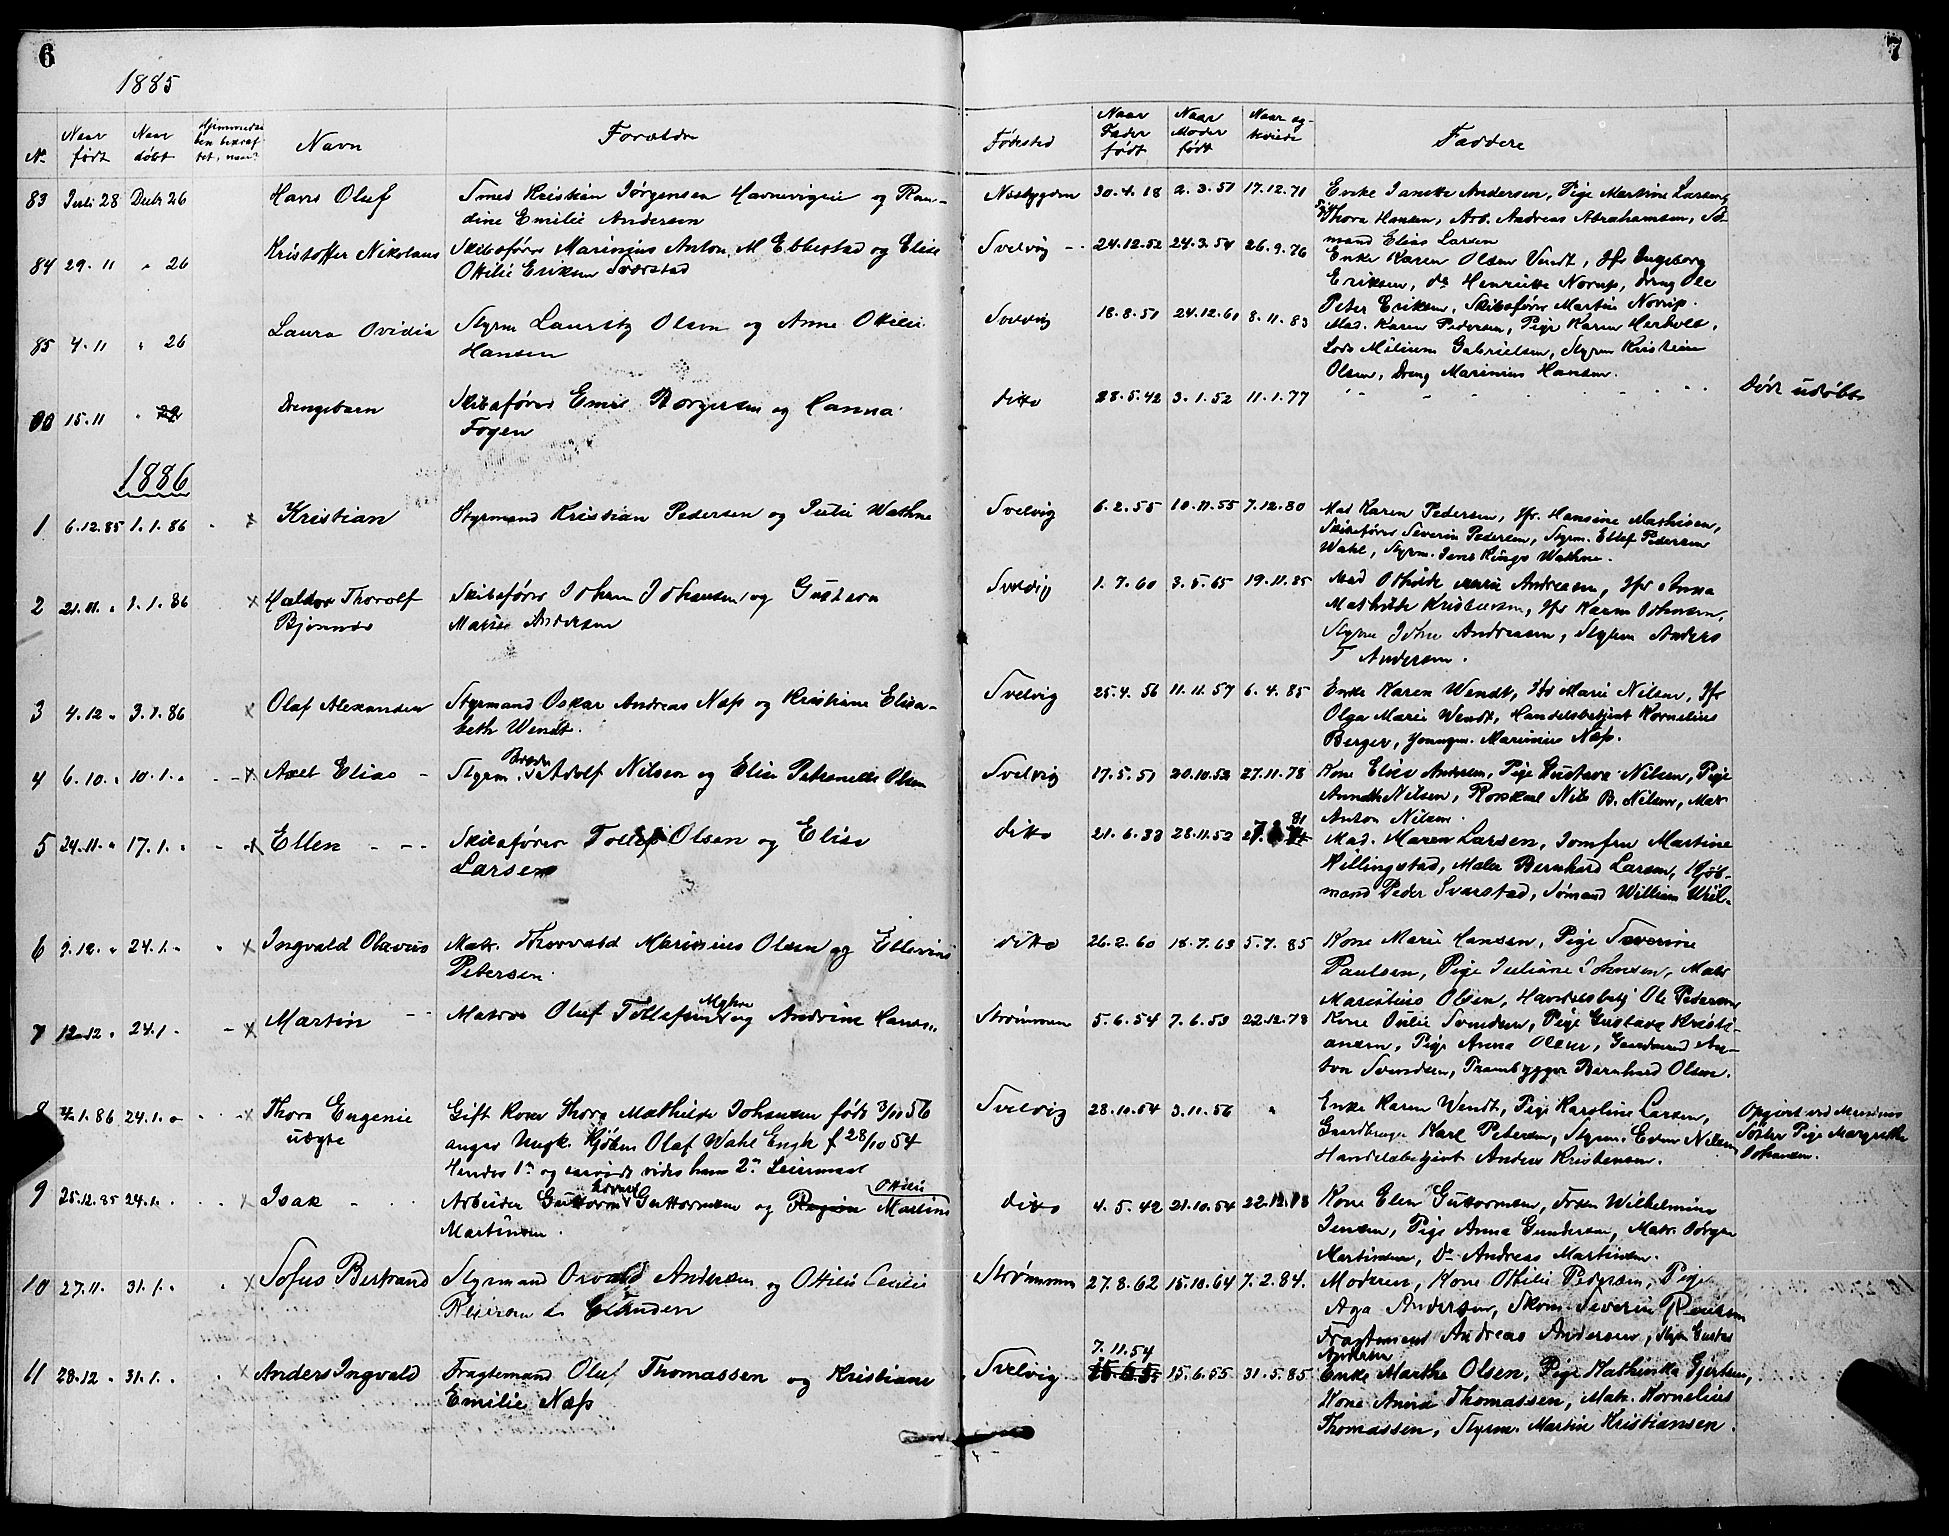 6
7
1885
No Naar født Naar døbt Hjemmedaaben bekræftet, naar? Navn Forældre Fødested Naar Fader født Naar Moder født Naar ægteviede Faddere
83 Juli 28 Decbr 26 Hans Oluf Smed Kristian Jørgensen Havnevigen og Ran- Nesbygden 30.4.18 2.3.51 17.12.71 Enke Janette Andersen, Pige Martine Larsen,
dine Emilie Andersen Pige Thora Hansen, Arb. Andreas Abrahamsen, Sø-
mand Elias Larsen
84 29.11 " 26 Kristoffer Nikolaus Skibsfører Marinius Anton M Ebbestad og Elise Svelvig 24.12.52 24.3.54 26.9.76 Enke Karen Olsen Vendt, Jfr Ingeborg
Ottilie Eriksen Sværstad Eriksen, do Henriette Norup, Dreng Ole
Peter Eriksen, Skibsfører Martin Norup.
85 4.11 " 26 Laura Ovidia Styrm Lauritz Olsen og Anne Ottilie Svelvig 18.8.51 24.12.61 8.11.83 Mad. Karen Pedersen, Pige Karen Herhold,
Hansen Lods Gabrielsen, Styrm Kristian
Olsen, Dreng Marinius Hansen.
00 15.11 " 29 Drengebarn Skibsfører Emil Borgersen og Hanna ditto 28.5.42 3.1.52 11.1.77 " " Død udøbt
Fogen
1886
1 6.12.85 1.1.86 × Kristian Styrmand Kristian Pedersen og Julie Wathne Svelvig 6.2.55 10.11.55 7.12.80 Mad Karen Pedersen, Jfr. Hansine Mathisen,
Skibsfører Severin Pedersen, Styrm. Ellef Pedersen
Wahl, Styrm. Jens Kings Wathne.
2 21.11. " 1.1.86 × Haldor Thorolf Skibsfører Johan Johansen og Gustava Svelvig 1.7.60 3.5.65 19.11.85 Mad Othilde Marie Andreasen, Jfr Anna
Bjørnnes Marie Andersen Mathilde Kristensen, Jfr Karen Johnsen,
Styrm John Andreasen, Styrm Anders
T Andersen.
3 4.12 " 3.1.86 × Olaf Alexander Styrmand Oskar Andreas Næss og Kristiane Elisa- Svelvig 25.4.56 11.11.57 6.4.85 Enke Karen Wendt, Jfr Marie Nilsen, Jfr
beth Wendt. Olga Marie Wendt, Handelsbetjent Kornelius
Berger, Marinius Næss.
4 6.10. " 10.1. " × Axel Elias Styrm. Adolf Nilsen og Elise Petronelle Olsen Svelvig 17.5.51 20.10.52 27.11.78 Kone Elise Andersen, Pige Gustava Nilsen, Pige
Annette Nilsen, Rorskarl Nils B. Nilsen, Matr
Anton Nilsen
5 24.11. " 17.1. " × Ellen Skibsfører Tollef Olsen og Elise ditto 21.6.33 28.11.52 81 Mad. Maren Larsen, Jomfru Martine
Larsen Killingstad, Maler Bernhard Larsen, Kjøb-
mand Peder Svarstad, Sømand William
6 9.12. " 24.1. " × Ingvald Olavus Matr. Thorvald Marinius Olsen og Ellevine ditto 26.2.60 18.7.63 5.7.85 Kone Marie Hansen, Pige Severine
Petersen. Paulsen, Pige Juliane Johnsen, Matr
Marcelius Olsen, Handelsbetj Ole Pedersen
7 12.12 " 24.1. × Martin Matros Oluf Tollefsen og Andrine Hans.. Strømmen 5.6.54 7.6.53 22.12.78 Kone Julie Svendsen, Pige Gustava Kristi-
ansen, Pige Anna Olsen, Gaardmand An-
ton Svendsen, Træmbygger Bernhard Olsen.
8 1.86 24.1. " × Thora Eugenie Gift Kone Thora Mathilde Johansen født 3/11 56 Svelvig 28.10.54 3.11.56 " Enke Karen Wendt, Pige Karoline Larsen, Opgivet ved Moderens
uægte angav Ungk. Kjøbm Olaf Wahl Engh f 28/10 54 Gaardbruger Karl Petersen, Styrm. Edvin Nilsen Søster Pige Margrethe
Hendes 1ste og vides hans 2den Leiermaal Handelsbetjent Anders Kristensen. Johansen.
9 25.12.85 24.1. " × Isak Arbeider Guttorm Guttormsen og Ottilie Martine ditto 4.5.42 21.10.54 22.12.78 Kone Elen Guttormsen, Frøken Wilhelmine
Martinsen. Jensen, Pige Anna Gundersen, Matr. Jørgen
Martinsen, Do Andreas Martinsen.
10 27.11. 31.1. " × Sofus Bertrand Styrmand Osvald Andersen og Ottilie Cecilie Strømmen 27.8.62 15.10.64 7.2.84. Moderen, Kone Othilie Pedersen, Pige
Reiersen Aga Andersen, Skom. Severin Reiersen
Fragtemand Andreas Andersen, Styrm Gustav
Andersen
7.11.54
11 28.12 " 31.1. " × Anders Ingvald Fragtemand Oluf Thomassen og Kristiane Svelvig 15.6.55 15.6.55 31.5.85 Enke Marthe Olsen, Pige Kathinka Gjertsen,
Emilie Næss Kone Anna Thomassen, Matr. Kornelius
Thomassen, Styrm. Martin Kristiansen.